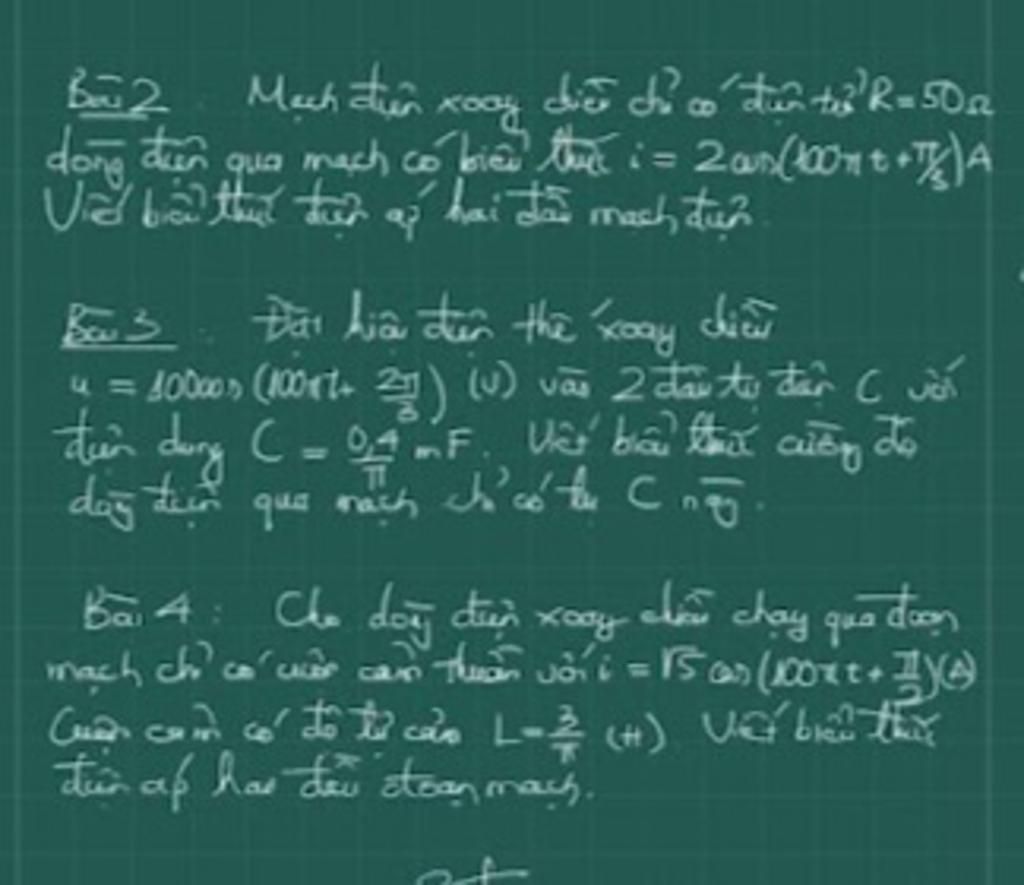 Bài 2 : Mạch điện xoay chiều chỉ có điện trở R = 50Ω
dòng điện qua mạch có biểu thức i = 2cos(100πt + π/3)A
Viết biểu thức điện áp hai đầu mạch điện.
Bài 3 : Đặt hiệu điện thế xoay chiều
u = 100cos(100πt + 2π/3) (V) vào 2 đầu tụ điện C với
điện dung C = 0,4/π mF. Viết biểu thức cường độ
dòng điện qua mạch chỉ có tụ C này.
Bài 4 : Cho dòng điện xoay chiều chạy qua đoạn
mạch chỉ có cuộn cảm thuần với i = √5 cos(100πt + π/2)(A)
Cuộn cảm có độ tự cảm L = 3/π (H) Viết biểu thức
điện áp hai đầu đoạn mạch.